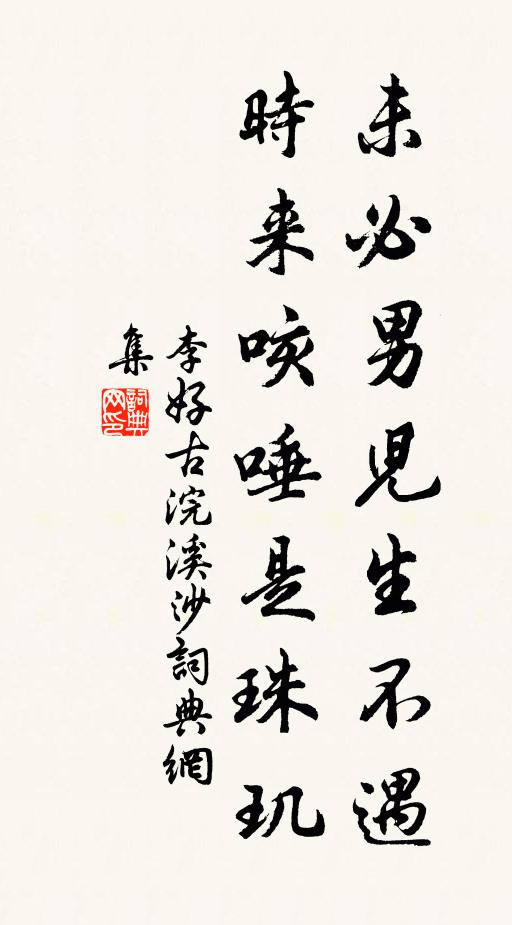 未必男児生不遇
時来咳唾是珠玑
李好古浣溪沙詞典網
集
詞典
网印